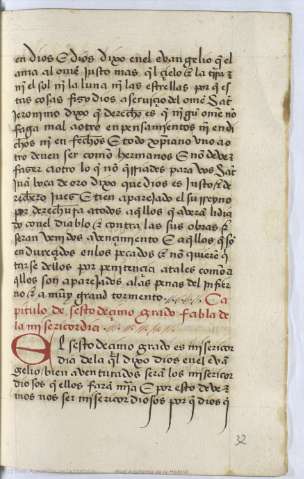 en dios E dios dixo enel euangelio q̃ el
ama al ome Justo mas q̃l çielo & la tr̃a &
nj el sol nj la luna nj las estrellas por q̃ es
tas cosas fizo dios a seruiçio del ome Sat̃
Jeronimo dixo q̃ derecho es q̃ njgũ ome no
faga mal a otro en pensamientos nj en di
chos nj en fechos E todo xp̃iano vno a o
tro deuen ser como hermanos E no deue
fazer a otro lo q̃ no q̃rriades para vos Sat̃
Juã boca de oro dixo que dios es Justo & de
rechero Jues E tien aparejado el su reyno
por derechura a todos aq̃llos q̃ auerã lidia
do conel diablo & contra las sus obras &
seran vençidos a vençimiento E aq̃llos q̃ sõ
enduresçidos enlos pecados & nõ quierẽ q̃
tarse dellos por penitençia a tales como a
q̃llos son aparejados alas penas del jnfier
no & a muy grand tormento Ca
pitulo de sesto deçimo grado fabla de
la misericordia
El sesto deçimo grado es misericor
dia dela q̃l dixo dios enel euã
gelio bien auenturados serã los misericor
diosos q̃ ellos farã mj̃a E por esto deuẽ
mos nos ser misericordiosos por q̃ dios q̃
32